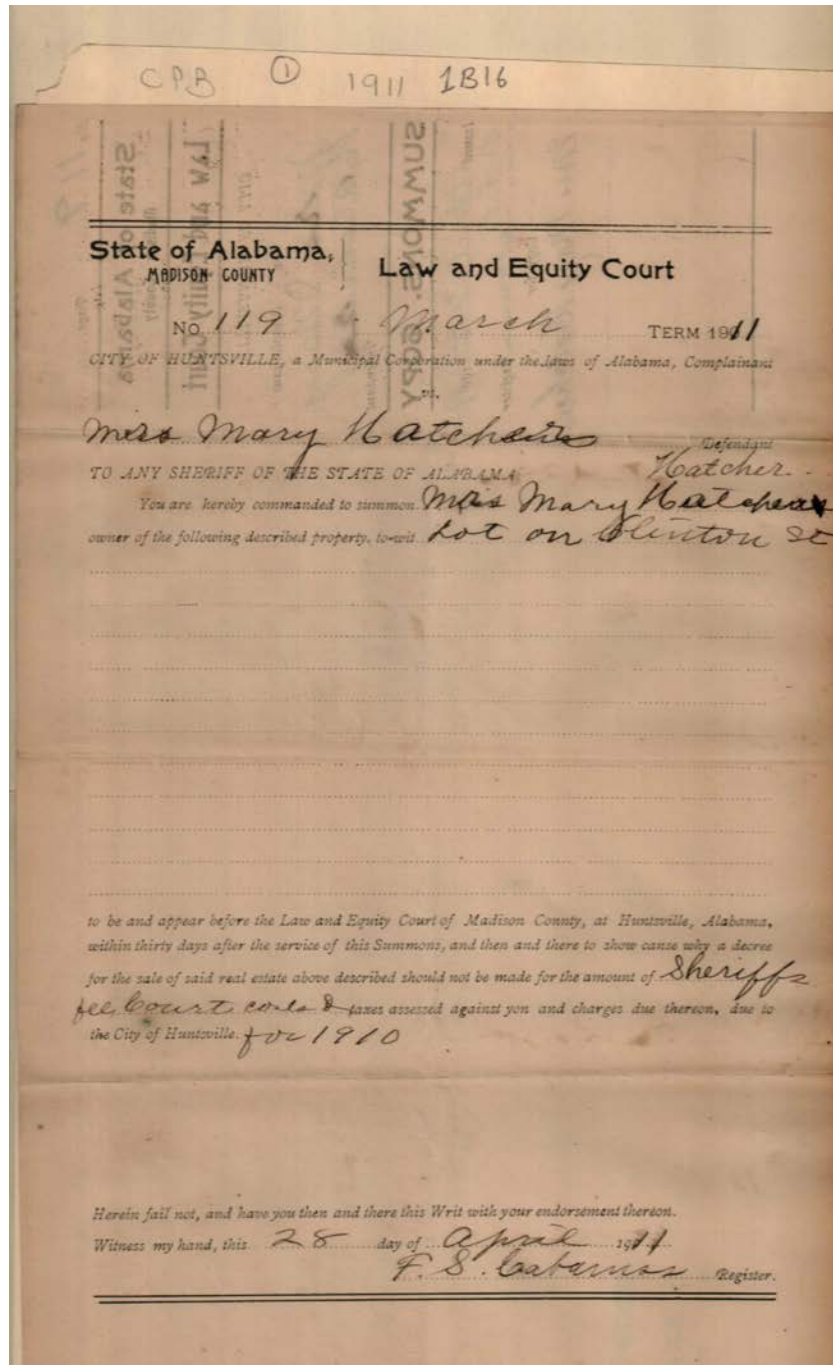 CPB ① 1911 1B16
State of Alabama,
MADISON COUNTY
Law and Equity Court
No. 119 March TERM 1911
CITY OF HUNTSVILLE, a Municipal Corporation under the laws of Alabama, Complainant
vs.
Mrs Mary Hatcher Defendant
Hatcher.
TO ANY SHERIFF OF THE STATE OF ALABAMA
You are hereby commanded to summon Mrs Mary
owner of the following described property, to-wit Lot on Clinton St
to be and appear before the Law and Equity Court of Madison County, at Huntsville, Alabama,
within thirty days after the service of this Summons, and then and there to show cause why a decree
for the sale of said real estate above described should not be made for the amount of Sheriffs
fee Court costs & taxes assessed against you and charges due thereon, due to
the City of Huntsville. for 1910
Herein fail not, and have you then and there this Writ with your endorsement thereon.
Witness my hand, this 28 day of April 1911
F. S. Register.